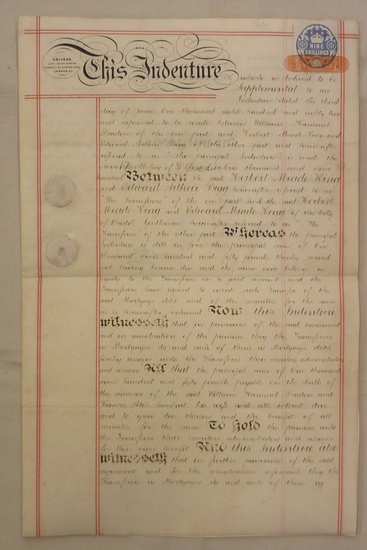 NINE
SHILLINGS
This Indenture
which is declared to be
Supplemental to an
Indenture dated the third
day of One thousand eight hundred and eighty
and expressed to be made between William Hammat
of the one part and Herbert Minte King and
Edward Arthur King of the other part and hereinafter
referred to as the principal Indenture is made the
day of One thousand nine
hundred Between the said Herbert Minte King
and Edward Arthur King hereinafter referred to as
"the Transferors" of the one part and the said Herbert
Minte King and Edward Minte King of the City
of Bristol Gentlemen hereinafter referred to as "the
Transferees" of the other part Whereas the principal
Indenture is still in force the principal sum of One
thousand nine hundred and fifty pounds thereby secured
not having become due and the
Transferors have agreed to
said Mortgage debt and of the securities for the same
as is hereinafter contained Now this Indenture
witnesseth that in pursuance of the said agreement
and in consideration of the premises they the Transferors
as Mortgagees do and each of them as Mortgagee doth
hereby assign unto the Transferees their executors administrators
and assigns All that the principal sum of One thousand
nine hundred and fifty pounds payable on the death of
the survivor of the said William Hammat and
Frances his wife and all interest due
and to grow due thereon and the benefit of all
securities for the same To hold the premises unto
the Transferees their executors administrators and assigns
for their own benefit And this Indenture also
witnesseth that in further pursuance of the said
agreement and for the consideration aforesaid they the
Transferors as Mortgagees do and each of them as